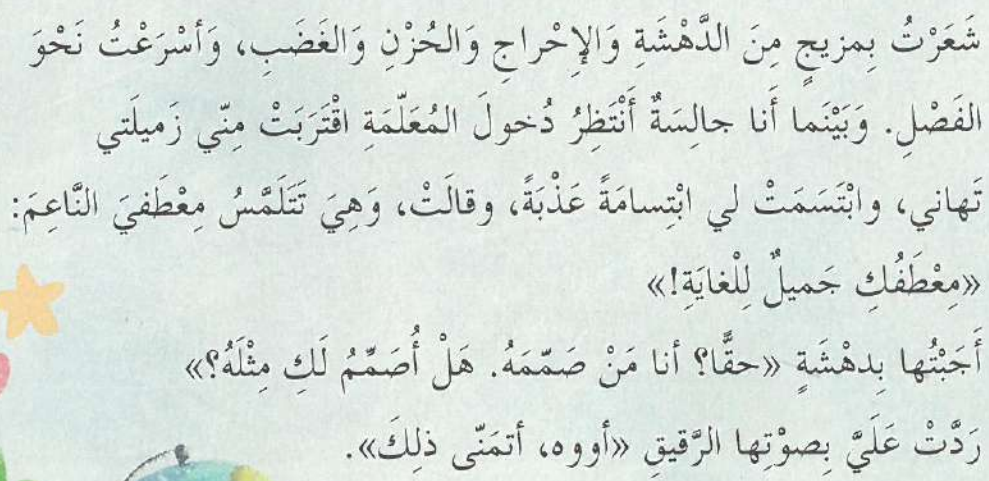 شَعَرْتُ بِمزيجٍ مِنَ الدَّهْشَةِ وَالإِحْراجِ وَالحُزْنِ وَالغَضَبِ، وَأَسْرَعْتُ نَحْوَ
الفَصْلِ. وَبَيْنَما أَنا جالِسَةٌ أَنْتَظِرُ دُخولَ المُعَلِّمَةِ اقْتَرَبَتْ مِنّي زَميلَتي
تَهاني، وابْتَسَمَتْ لي ابْتِسامَةً عَذْبَةً، وقالَتْ، وَهِيَ تَتَلَمَّسُ مِعْطَفيَ النَّاعِمَ:
«مِعْطَفُكِ جَميلٌ لِلْغايَةِ!»
أَجَبْتُها بِدهْشَةٍ «حقًّا؟ أنا مَنْ صَمّمَهُ. هَلْ أُصَمِّمُ لَكِ مِثْلَهُ؟»
رَدَّتْ عَلَيَّ بِصوْتِها الرَّقيقِ «أووه، أتمَنّى ذلِكَ».